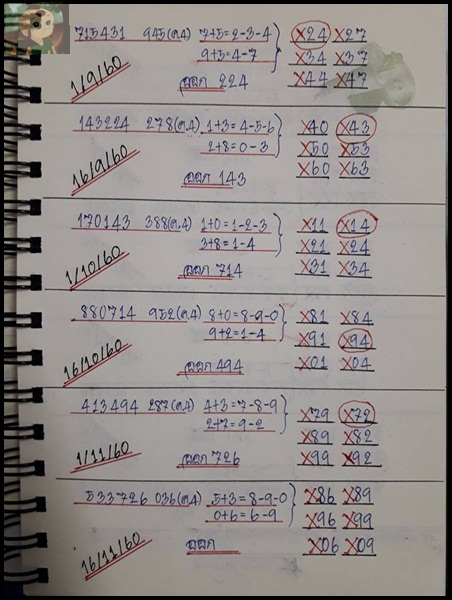 715431 945(ต.4) 7+5=2-3-4 X24 X27
9+5=4-7 X34 X37
1/9/60 ออก 224 X44 X47
143224 278(ต.4) 1+3=4-5-6 X40 X43
2+8=0-3 X50 X53
16/9/60 ออก 143 X60 X63
170143 388(ต.4) 1+0=1-2-3 X11 X14
3+8=1-4 X21 X24
1/10/60 ออก 714 X31 X34
880714 952(ต.4) 8+0=8-9-0 X81 X84
9+2=1-4 X91 X94
16/10/60 ออก 494 X01 X04
413494 287(ต.4) 4+3=7-8-9 X79 X72
2+7=9-2 X89 X82
1/11/60 ออก 726 X99 X92
533726 036(ต.4) 5+3=8-9-0 X86 X89
0+6=6-9 X96 X99
16/11/60 ออก X06 X09